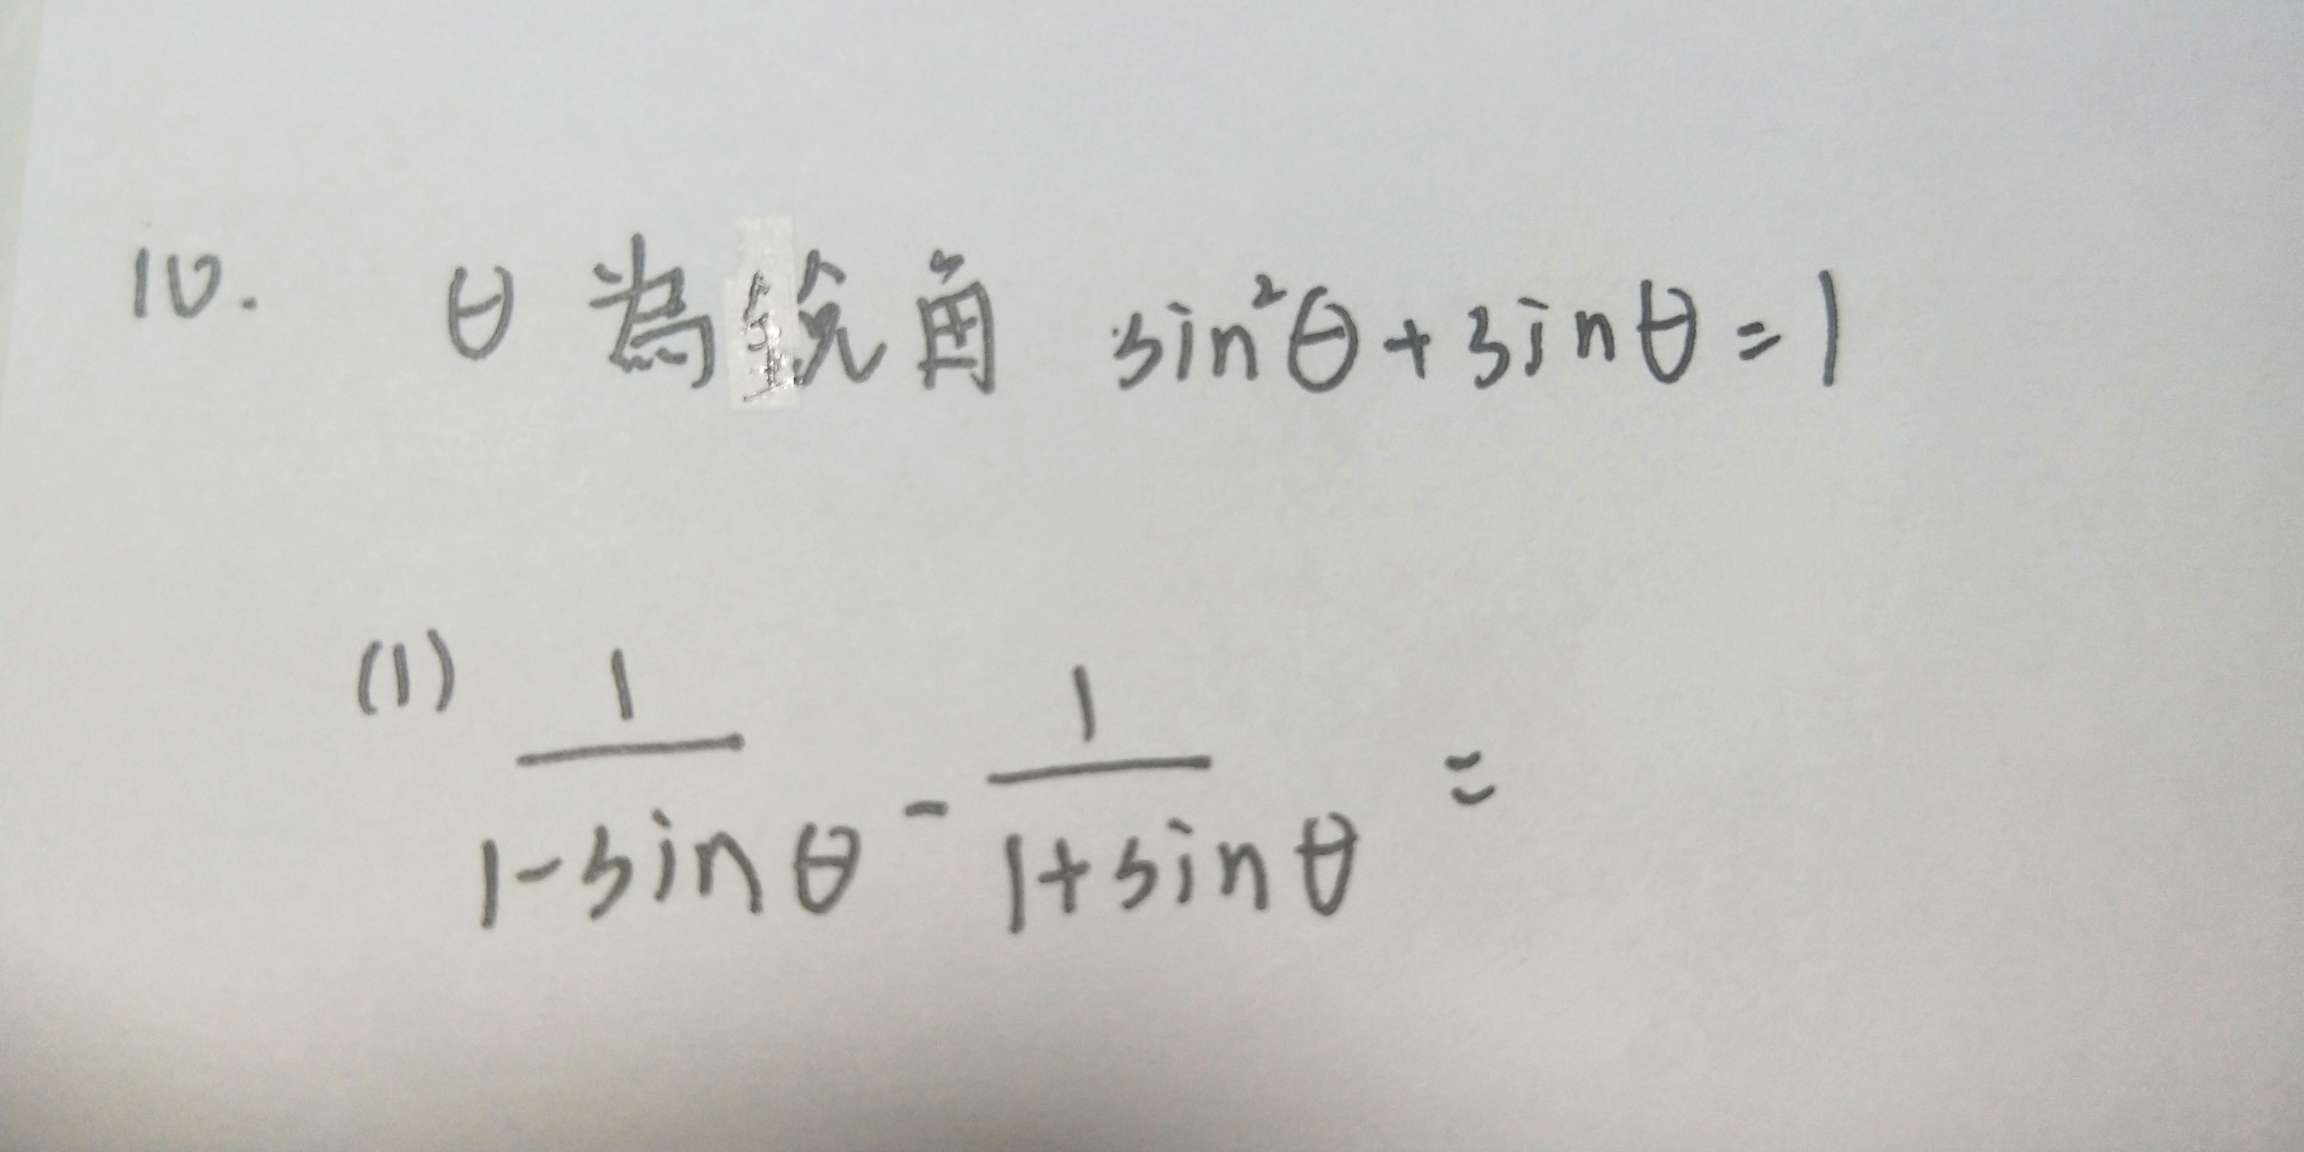 10. θ為銳角 sin²θ+sinθ=1
(1) 1/(1-sinθ) - 1/(1+sinθ) =